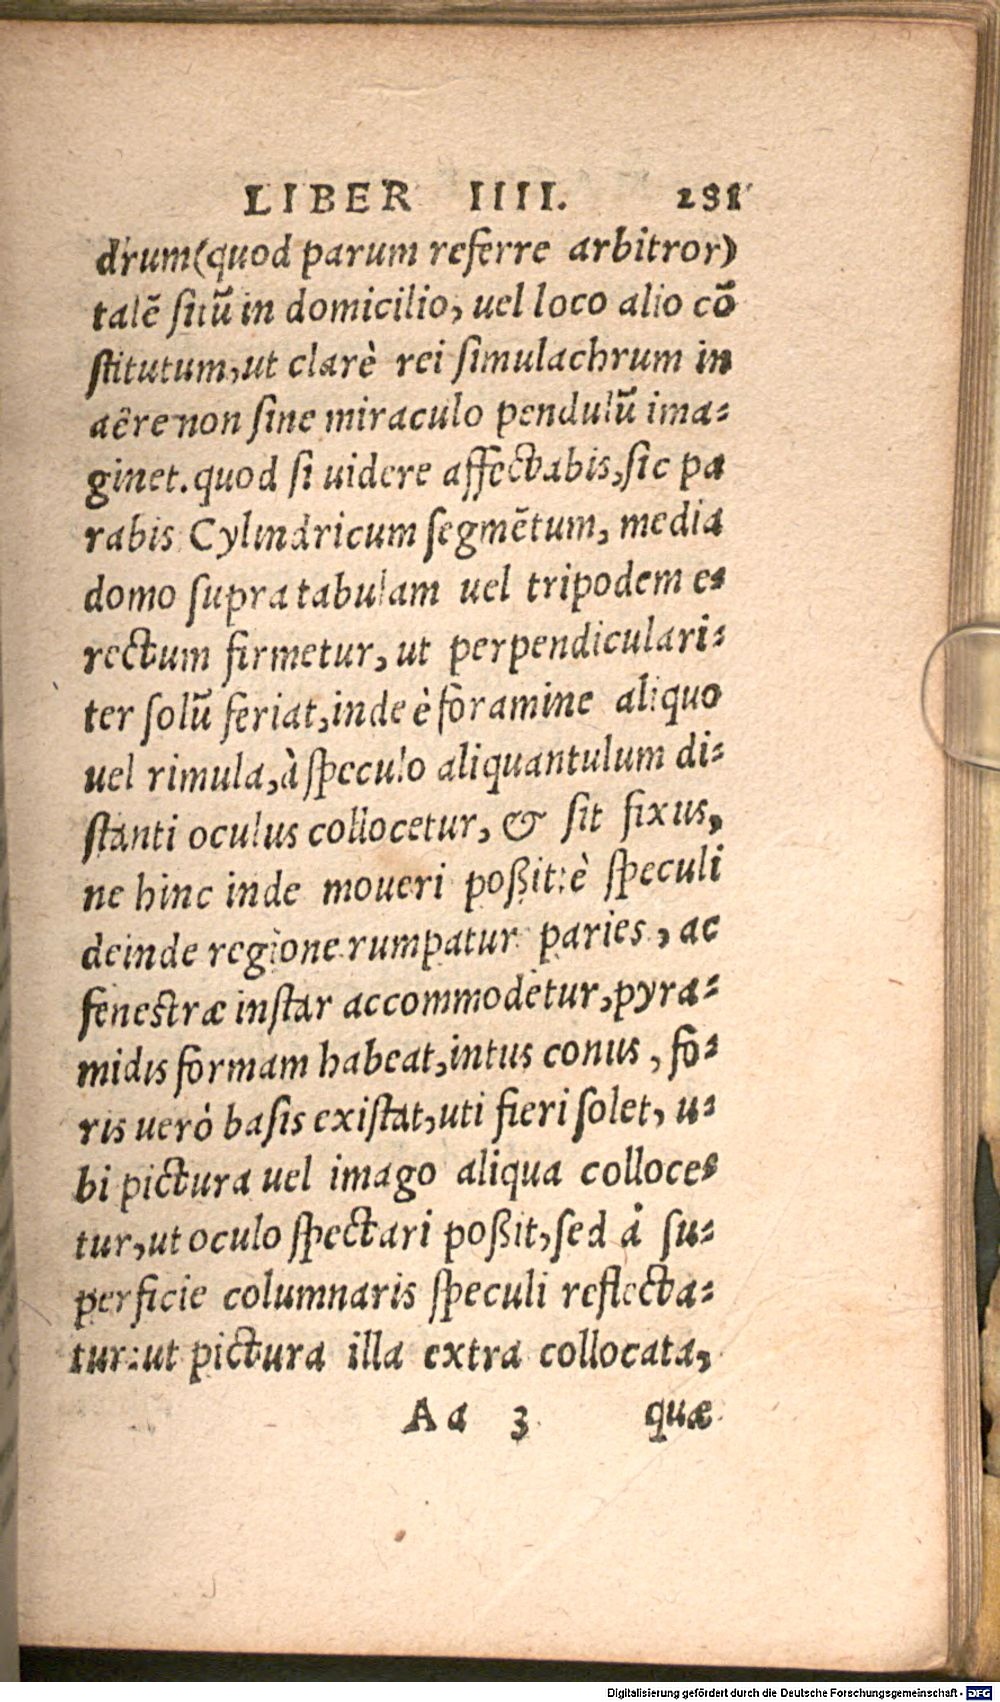 LIBER IIII. 281
drum(quod parum referre arbitror)
talē ſitū in domicilio, uel loco alio cō
ſtitutum, ut clarè rei ſimulachrum in
aëre non ſine miraculo pendulū ima⸗
ginet. quod ſi uidere affectabis, ſic pa
rabis Cylindricum ſegmētum, media
domo ſupra tabulam uel tripodem e⸗
rectum firmetur, ut perpendiculari⸗
ter ſolū feriat, inde è foramine aliquo
uel rimula, à ſpeculo aliquantulum di⸗
ſtanti oculus collocetur, & ſit fixus,
ne hinc inde moueri poßit: è ſpeculi
deinde regione rumpatur paries, ac
feneſtræ inſtar accommodetur, pyra⸗
midis formam habeat, intus conus, fo⸗
ris uerò baſis exiſtat, uti fieri ſolet, u⸗
bi pictura uel imago aliqua colloce⸗
tur, ut oculo ſpectari poßit, ſed à ſu⸗
perficie columnaris ſpeculi reflecta⸗
tur: ut pictura illa extra collocata,
Aa 3 quæ
Digitalisierung gefördert durch die Deutsche Forschungsgemeinschaft - DFG